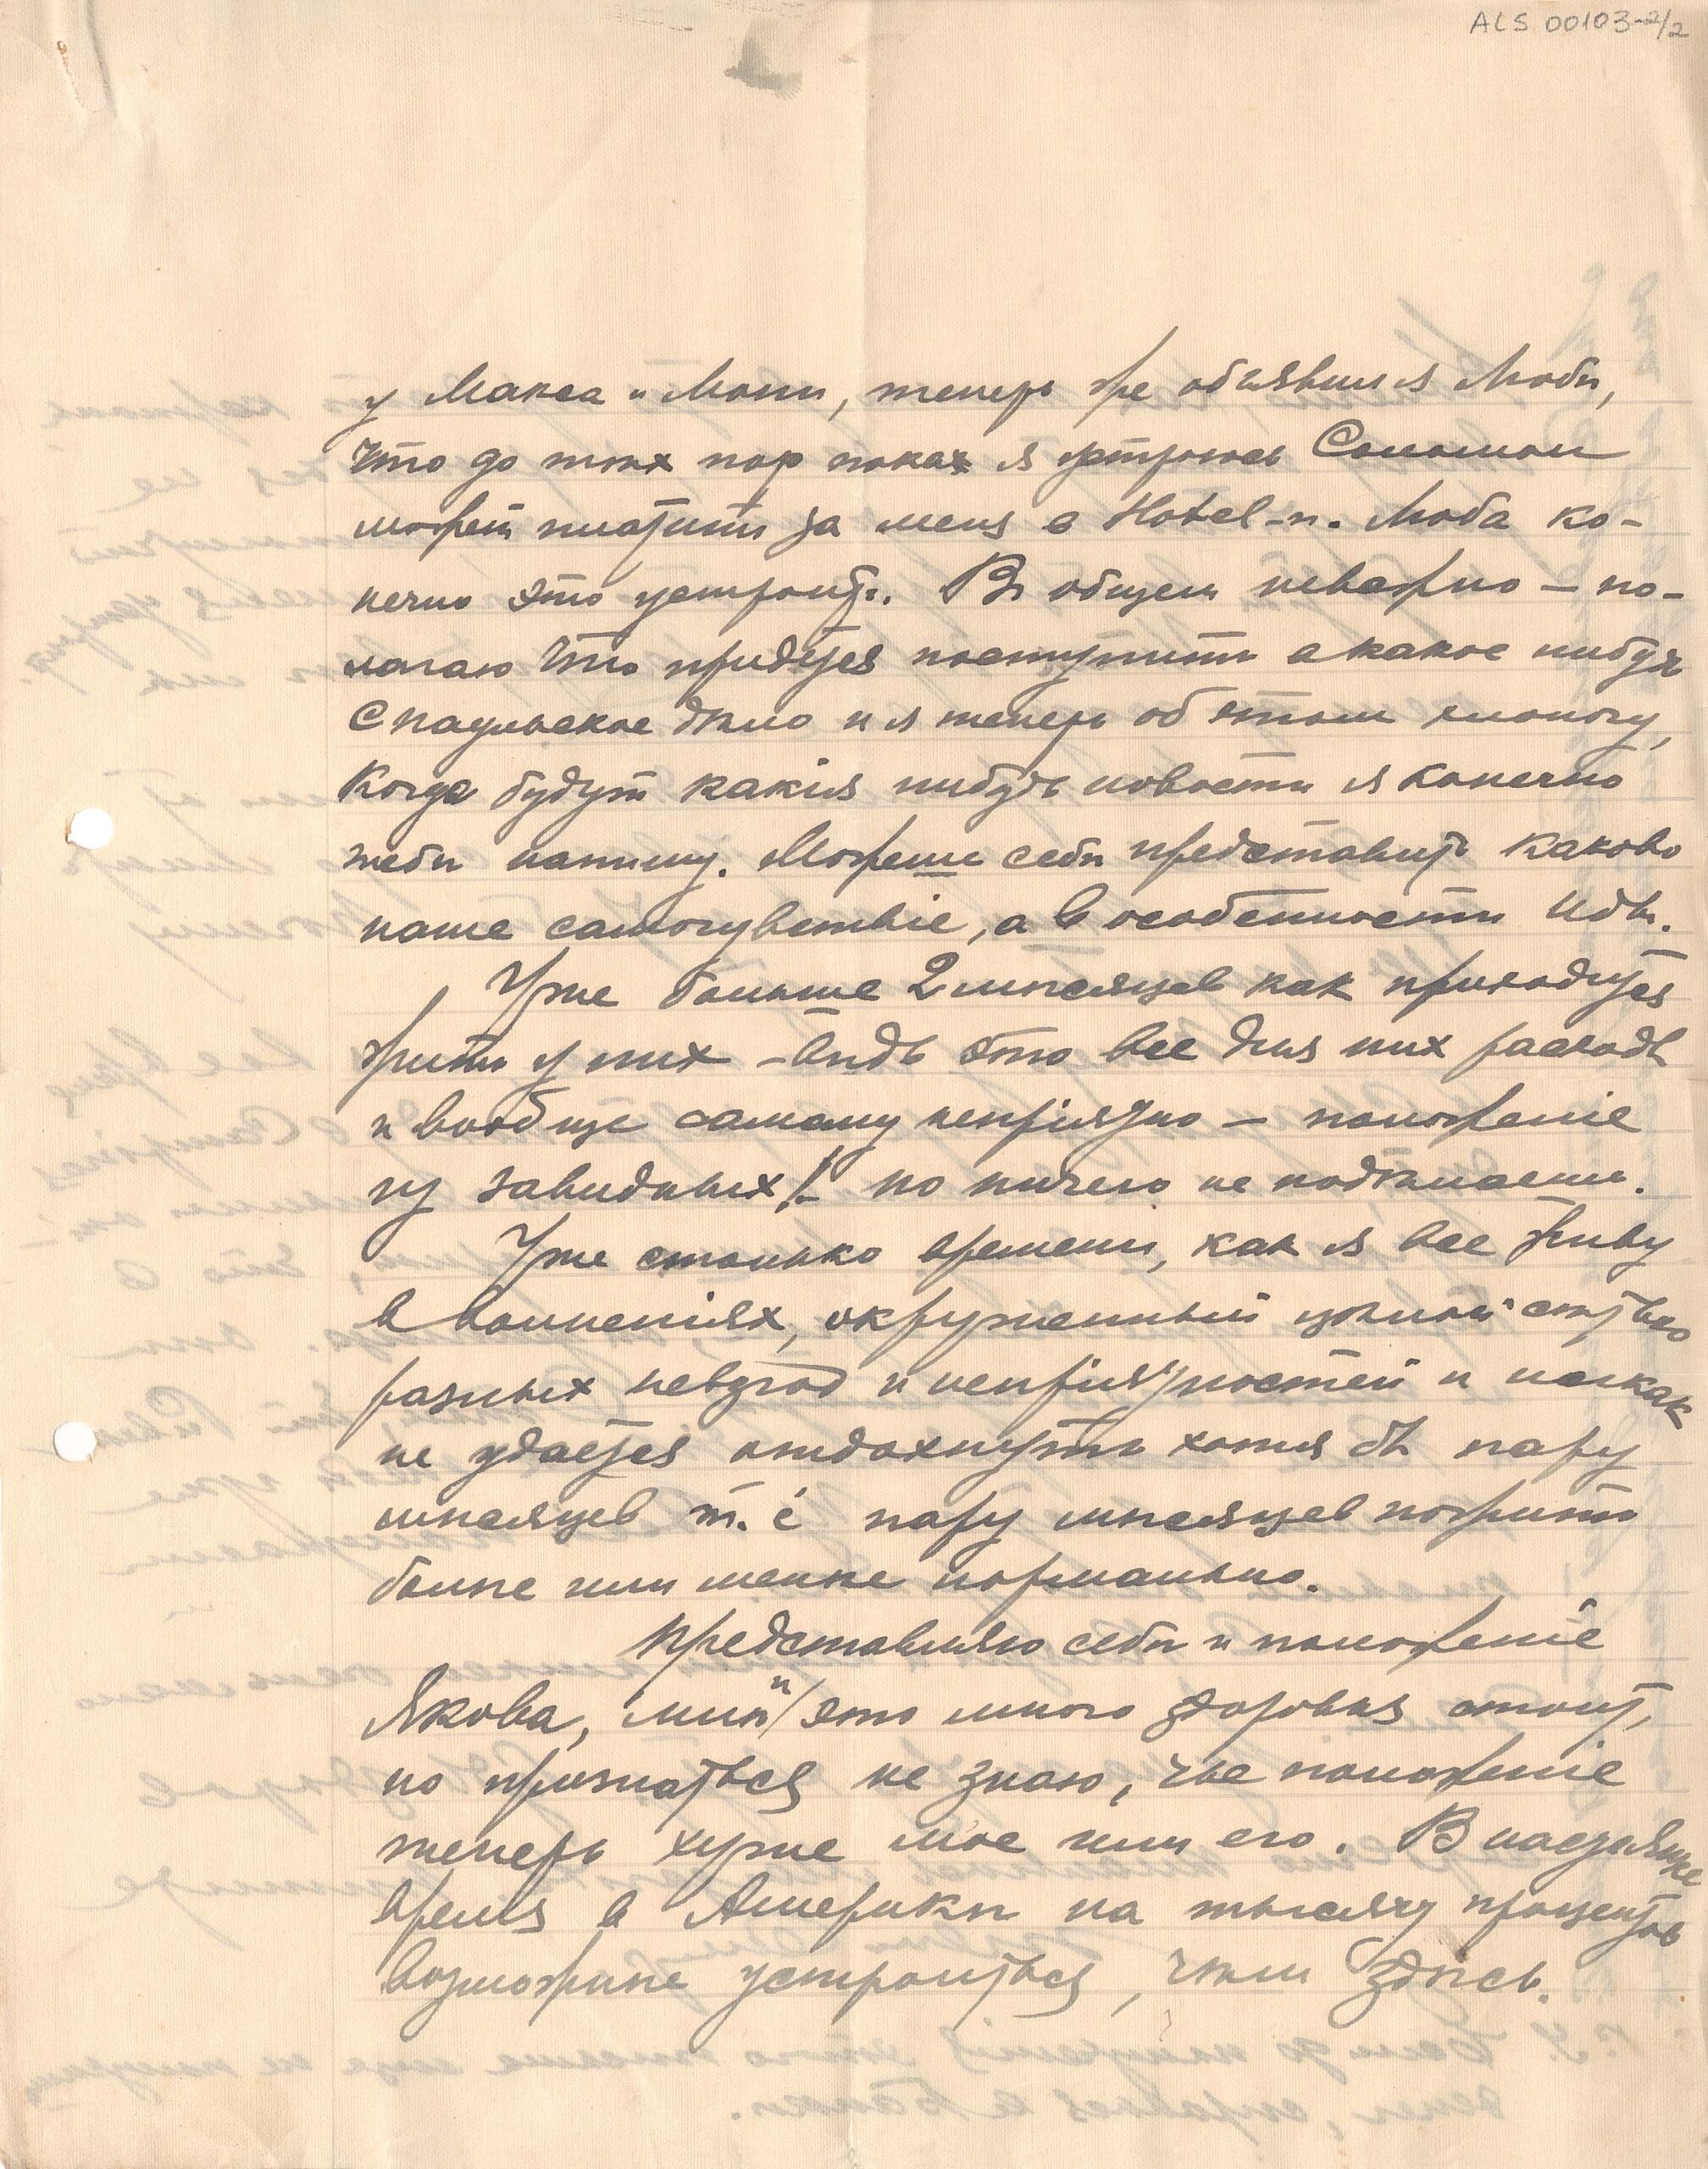 ALS 00103-2/2
у Макса и Мони, теперь же объявился Люби,
что до тѣх пор поках я устроюсь Соломон
может платить за меня в Hotel-ѣ. Люба ко-
нечно это устроитъ. Въ общем неважно – по-
лагаю что придется поступить в какое нибудь
спаульское дѣло и я теперь об этом хлопочу,
Когда будут какія нибудь новости я конечно
тебѣ напишу. Можешь себѣ представить каково
наше самочувствіе, а в особенности Иды.
Уже больше 2 мѣсяцев как приходится
жить у них – вѣдь это все для них расходъ
и вообще самому непріятно – положеніе
из завидных! – но ничего не подѣлаешь.
Уже столько времени, как я все живу
в волненіях, окруженный цѣлой сетью
разных невзгод и непріятностей и никак
не удается отдохнуть хотя бы пару
мѣсяцев т. е пару мѣсяцев пожить
болѣе или менѣе нормально.
Представляю себѣ и положеніе
Якова, и это много здоровья стоит,
но признаться не знаю, чье положеніе
теперь хуже мое или его. В настоящее
время в Америкѣ на тысячу процентов
возможнѣе устроиться, чѣм здѣсь.